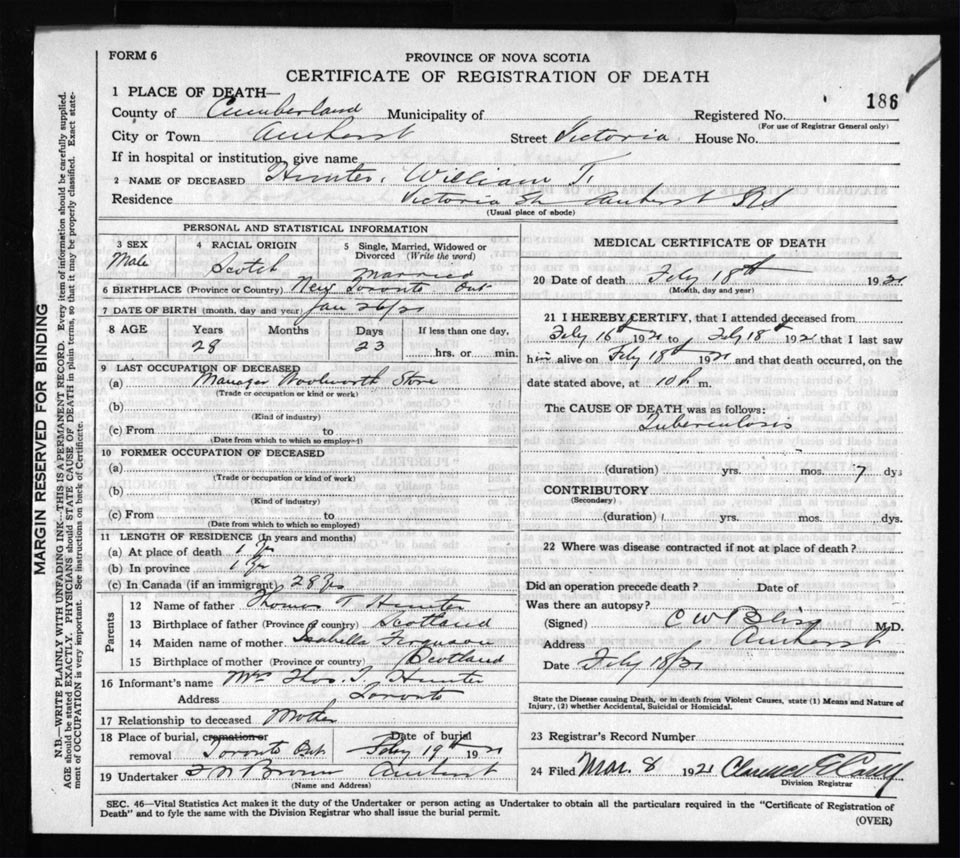 FORM 6
PROVINCE OF NOVA SCOTIA
CERTIFICATE OF REGISTRATION OF DEATH
186
1 PLACE OF DEATH—
County of Cumberland Municipality of Registered No.
(For use of Registrar General only)
City or Town Amherst Street Victoria House No.
If in hospital or institution, give name
2 NAME OF DECEASED Hunter, William T.
Residence Victoria St. Amherst N.S
(Usual place of abode)
PERSONAL AND STATISTICAL INFORMATION
3 SEX 4 RACIAL ORIGIN 5 Single, Married, Widowed or Divorced (Write the word)
Male Scotch Married
6 BIRTHPLACE (Province or Country) New Toronto Ont
7 DATE OF BIRTH (month, day and year) Jan 26/21
8 AGE Years Months Days If less than one day,
28 23 hrs. or min.
9 LAST OCCUPATION OF DECEASED
(a) Manager Woolworth Store
(Trade or occupation or kind or work)
(b)
(Kind of industry)
(c) From to
(Date from which to which so employed)
10 FORMER OCCUPATION OF DECEASED
(a)
(Trade or occupation or kind of work)
(b)
(Kind of industry)
(c) From to
(Date from which to which so employed)
11 LENGTH OF RESIDENCE (In years and months)
(a) At place of death 1 Yr
(b) In province 1 Yr
(c) In Canada (if an immigrant) 28 Yrs
Parents
12 Name of father Thomas T Hunter
13 Birthplace of father (Province or country) Scotland
14 Maiden name of mother Isabella Ferguson
15 Birthplace of mother (Province or country) Scotland
16 Informant's name Mrs Thos. T. Hunter
Address Toronto
17 Relationship to deceased Mother
18 Place of burial, cremation or removal Toronto Ont Date of burial Feby 19th 1921
19 Undertaker Brown Amherst
(Name and Address)
MEDICAL CERTIFICATE OF DEATH
20 Date of death Feby 18th 1921
(Month, day and year)
21 I HEREBY CERTIFY, that I attended deceased from
Feby 16th 1921 to Feby 18th 1921 that I last saw
him alive on Feby 18th 1921 and that death occurred, on the
date stated above, at 10 P. m.
The CAUSE OF DEATH was as follows:
Tuberculosis
(duration) yrs. mos. 7 dys
CONTRIBUTORY
(Secondary)
(duration) yrs. mos. dys.
22 Where was disease contracted if not at place of death?
Did an operation precede death? Date of
Was there an autopsy?
(Signed) C W Bliss M.D.
Address Amherst
Date Feby 18/21
State the Disease causing Death, or in death from Violent Causes, state (1) Means and Nature of
Injury, (2) whether Accidental, Suicidal or Homicidal.
23 Registrar's Record Number
24 Filed Mar. 8 1921 Clarence E
Division Registrar
SEC. 46—Vital Statistics Act makes it the duty of the Undertaker or person acting as Undertaker to obtain all the particulars required in the "Certificate of Registration of
Death" and to fyle the same with the Division Registrar who shall issue the burial permit.
(OVER)
MARGIN RESERVED FOR BINDING
N.B.—WRITE PLAINLY WITH UNFADING INK—THIS IS A PERMANENT RECORD. Every item of information should be carefully supplied.
AGE should be stated EXACTLY. PHYSICIANS should STATE CAUSE OF DEATH in plain terms, so that it may be properly classified. Exact state-
ment of OCCUPATION is very important. See instructions on back of Certificate.